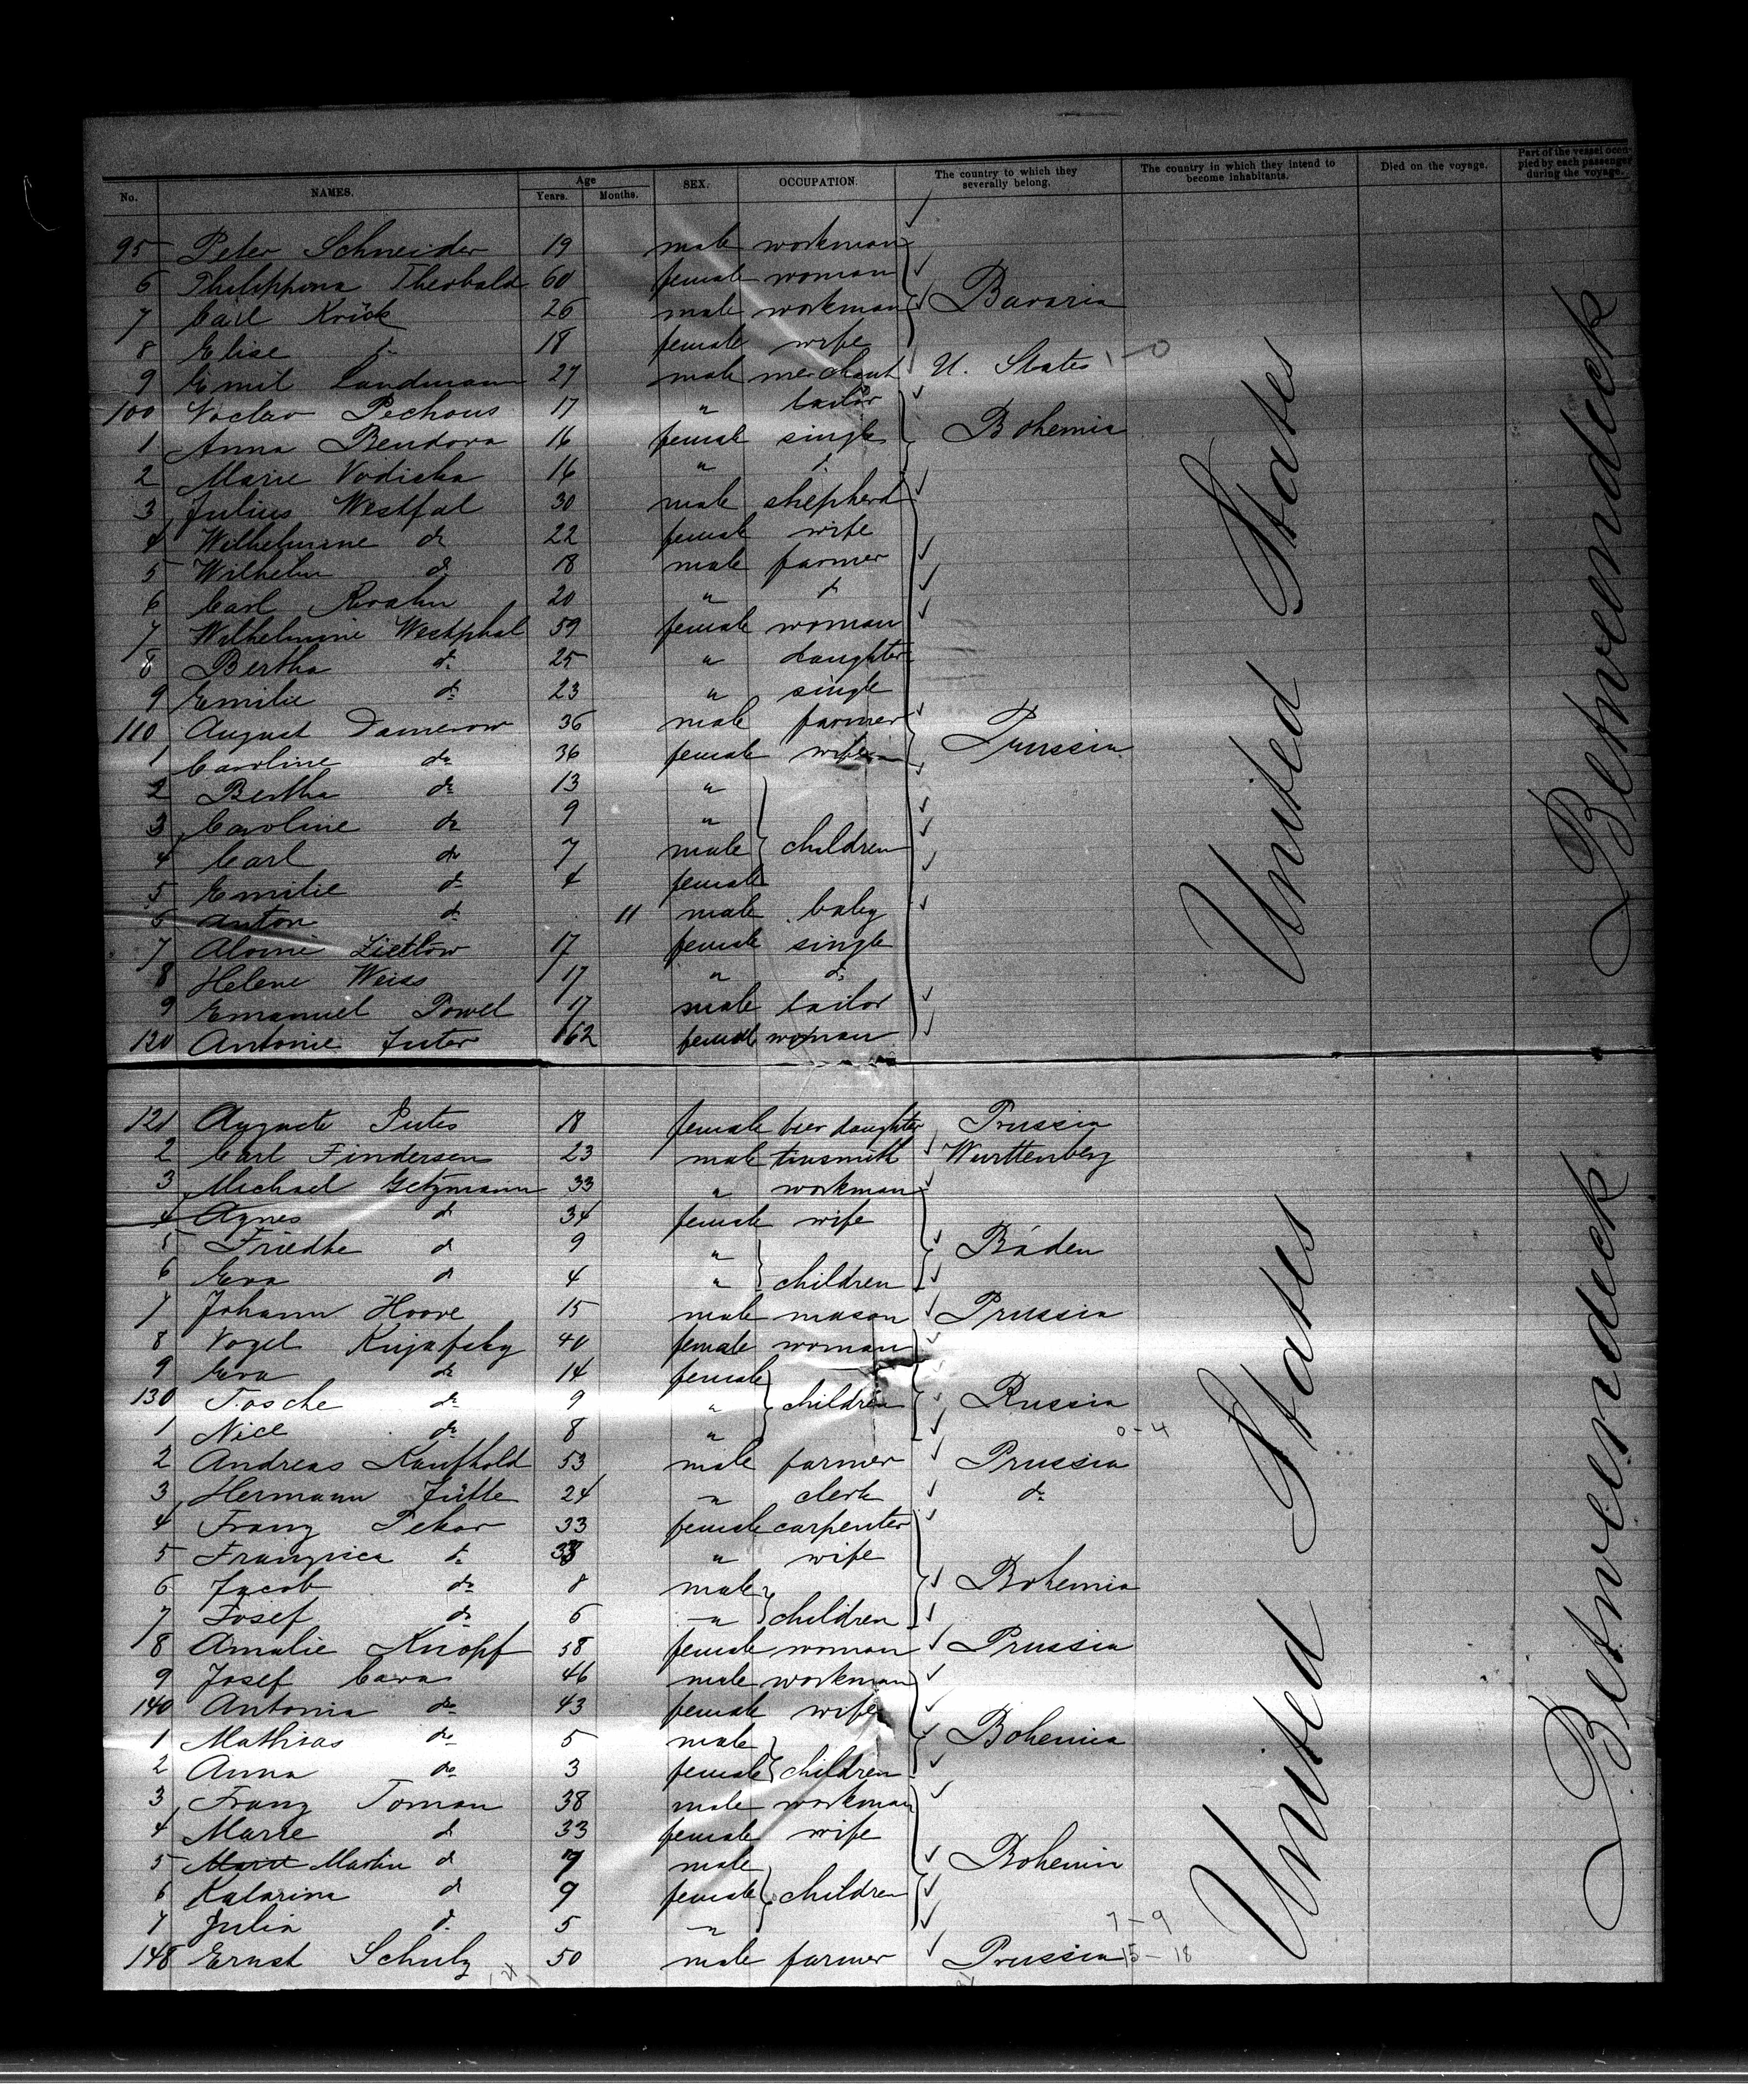 No. NAMES. Age Years. Months. SEX. OCCUPATION. The country to which they severally belong. The country in which they intend to become inhabitants. Died on the voyage. Part of the vessel occupied by each passenger during the voyage.
95 Peter Schneider 19 male workman
6 Philippina Theobald 60 female woman
7 Carl Krick 26 male workman Bavaria
8 Elise do 18 female wife
9 Emil Landmann 27 male merchant U. States 1-0
100 Vaclav Pechous 17 " tailor
1 Anna Bendova 16 female single Bohemia
2 Marie Vodicka 16 " do
3 Julius Westfal 30 male shepherd
4 Wilhelmine do 22 female wife
5 Wilhelm do 18 male farmer
6 Carl 20 " do
7 Wilhelmine Westphal 59 female woman
8 Bertha do 25 " daughter
9 Emilie do 23 " single
110 August Damerow 36 male farmer Prussia
1 Caroline do 36 female wife
2 Bertha do 13 "
3 Caroline do 9 "
4 Carl do 7 male children
5 Emilie do 4 female
6 Anton do 11 male baby
7 Lietlow 17 female single
8 Helene Weiss 17 " do
9 Emanuel Powel 17 male tailor
120 Antonie Juter 62 female woman
United States
Betweendeck
121 Auguste 18 female her daughter Prussia
2 Carl Findersen 23 male tinsmith Wurttenberg
3 Michael Getzmann 33 " workman
4 Agnes do 34 female wife
5 Friedke do 9 " Baden
6 Eva do 4 " children
7 Johann Hoove 15 male mason Prussia
8 Vogel 40 female woman
9 Eva do 14 female
130 Tosche do 9 " children Russia
1 Nice do 8 " 0-4
2 Andreas Kaufhold 53 male farmer Prussia
3 Hermann Jütte 24 " clerk do
4 Franz Pekar 33 female carpenter
5 Franzisca do 33 " wife
6 Jacob do 8 male Bohemia
7 Josef do 6 " children
8 Amalie Knopf 58 female woman Prussia
9 Josef Cava 46 male workman
140 Antonia do 43 female wife
1 Mathias do 5 male Bohemia
2 Anna do 3 female children
3 Franz Toman 38 male workman
4 Marie do 33 female wife
5 Martin do 7 male Bohemia
6 Katarina do 9 female children
7 Julia do 5 " 7-9
148 Ernst Schulz 50 male farmer Prussia 15-18
United States
Betweendeck